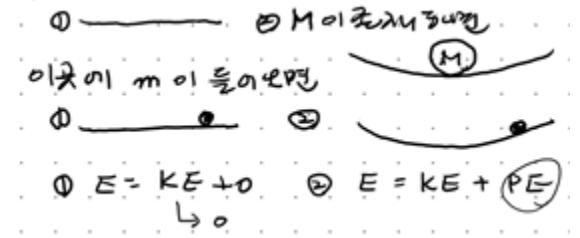 ① ② M이 존재하면
M
이곳에 m이 들어오면
① ②
① E = KE + 0 ② E = KE + PE
↳ 0